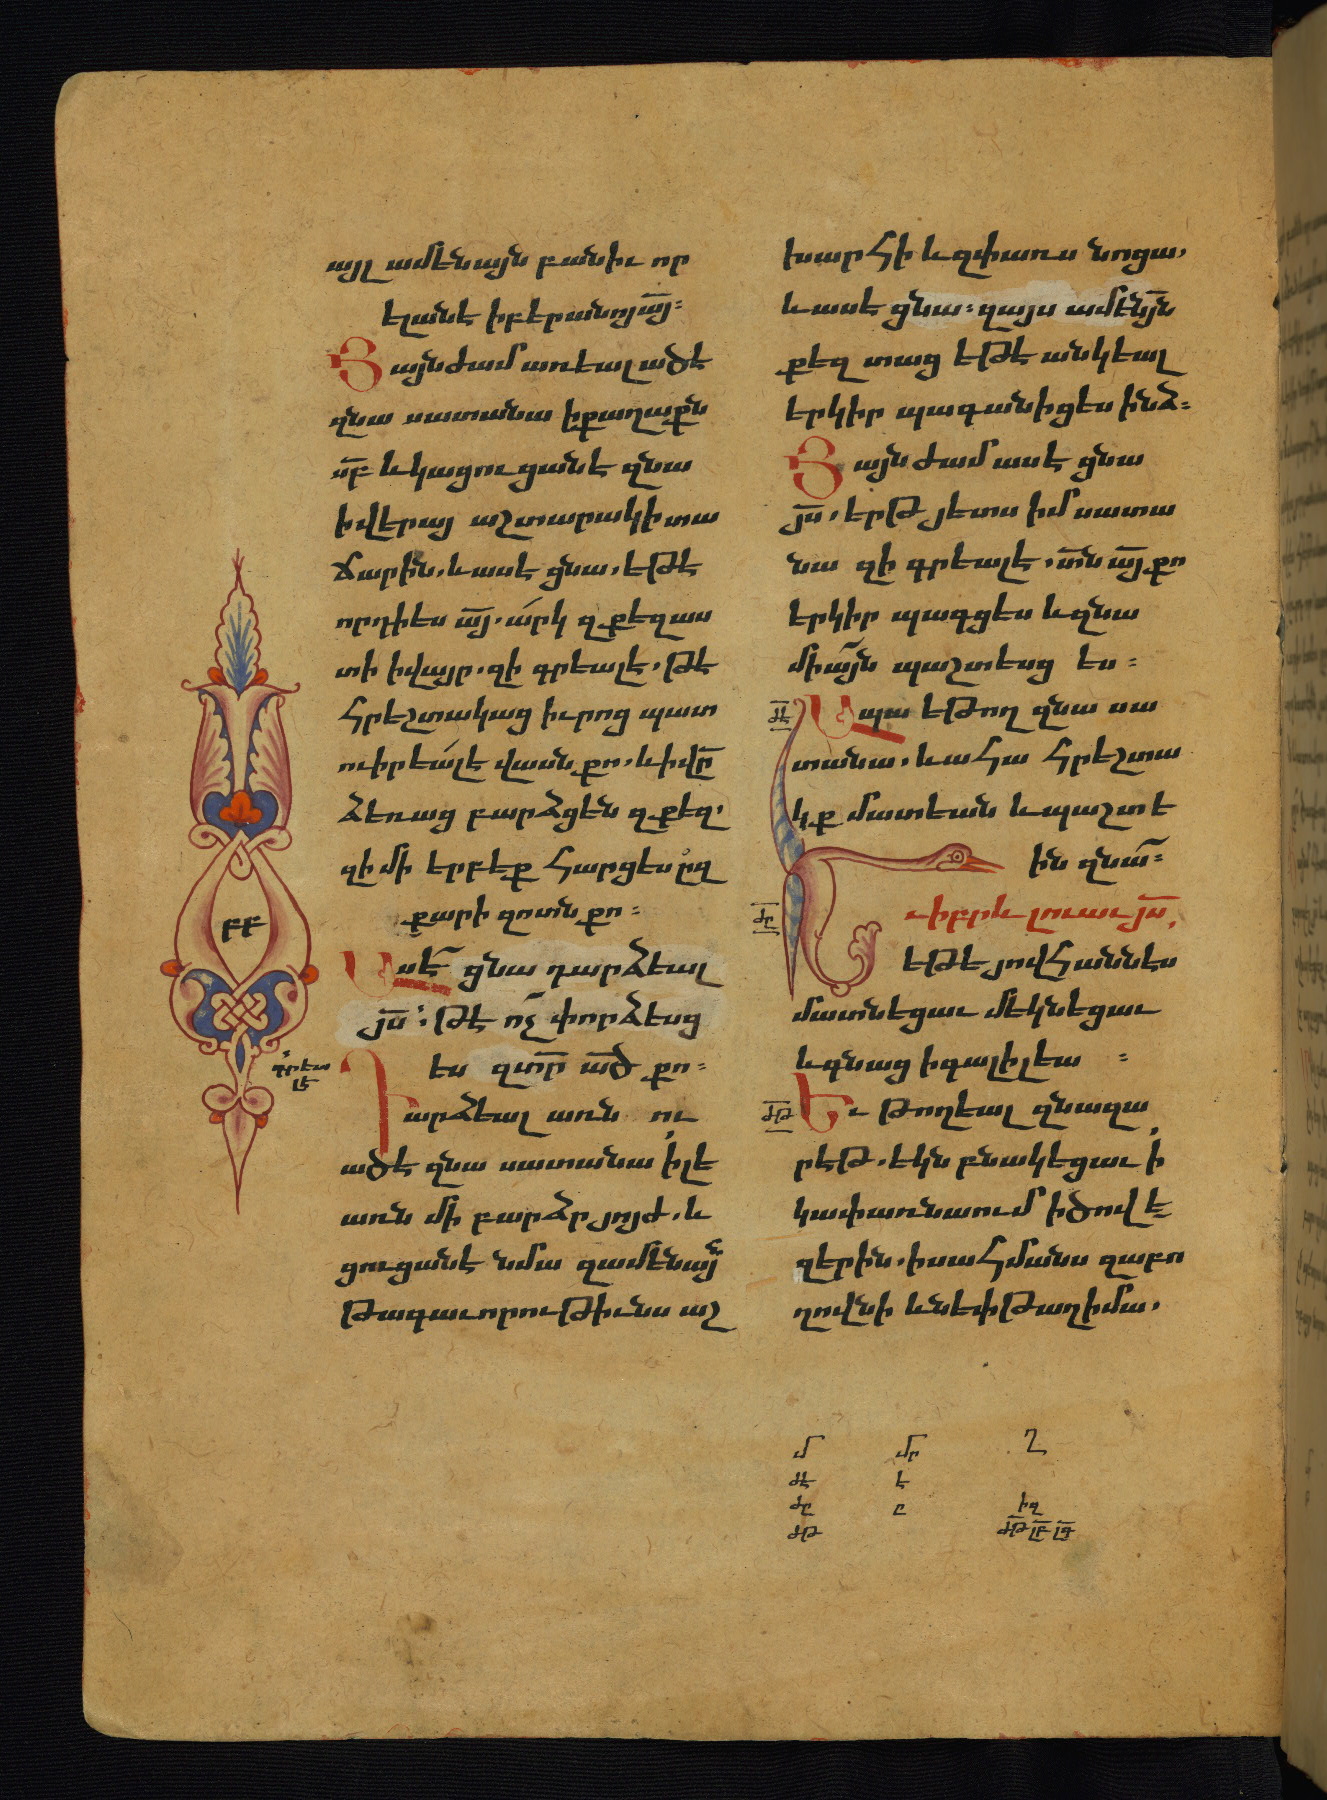 այլ ամենայն բանիւ որ
ելանէ ի բերանոյ ա՟յ։
Յայնժամ առեալ ածէ
զնա սատանա ի քաղաքն
ս՟բ և կացուցանէ զնա
ի վերայ աշտարակի տա
ճարին, և ասէ ցնա, եթէ
որդի ես ա՟յ. ա՛րկ զքեզ աս
տի ի վայր, զի գրեալ է, թէ
հրեշտակաց իւրոց պատ
ուիրեա՛լ է վասն քո, և ի վ՟ր
ձեռաց բարձցեն զքեզ,
զի մի երբեք հարցես ըզ
քարի զոտն քո։
Ասէ ցնա դարձեալ
յ՟ս. գրեալ է թէ ո՛չ փորձեսց
ես զտ՟ր ա՟ծ քո։
Դարձեալ առն ու
ածէ զնա սատանա ի լե
առն մի բարձր յոյժ, և
ցուցանէ նմա զամենայն
թագաւորութիւնս աշ
խարհի և զփառս նոցա,
և ասէ ցնա։ զայս ամեն՟յն
քեզ տաց եթէ անկեալ
երկիր պագանիցես ինձ։
Յայնժամ ասէ ցնա
յ՟ս, երթ յետս իմ սատա
նա զի գրեալ է, տ՟ն ա՟յ քո
երկիր պագցես և զնա
միա՟յն պաշտեսց ես։
ԺԷ Ապա եթող զնա սա
տանա, և ահա հրեշտա
կք մատեան և պաշտէ
ին զնա՜։
ԺԸ Եւ իբրև լուաւ յ՟ս,
եթե յովհաննես
մատնեցաւ մեկնեցաւ
և գնաց ի գալիլեա ։
ԺԹ Եւ թողեալ զնազա
րէթ, եկն բնակեցաւ ի
կափառնաում ի ծովե
զերին, ի սահմանս զաբո
ղովնի և նեփթաղիմա,
բբ
մ մր ղ
ժէ է
ժը ը իզ
ժթ ժթ լբ լգ